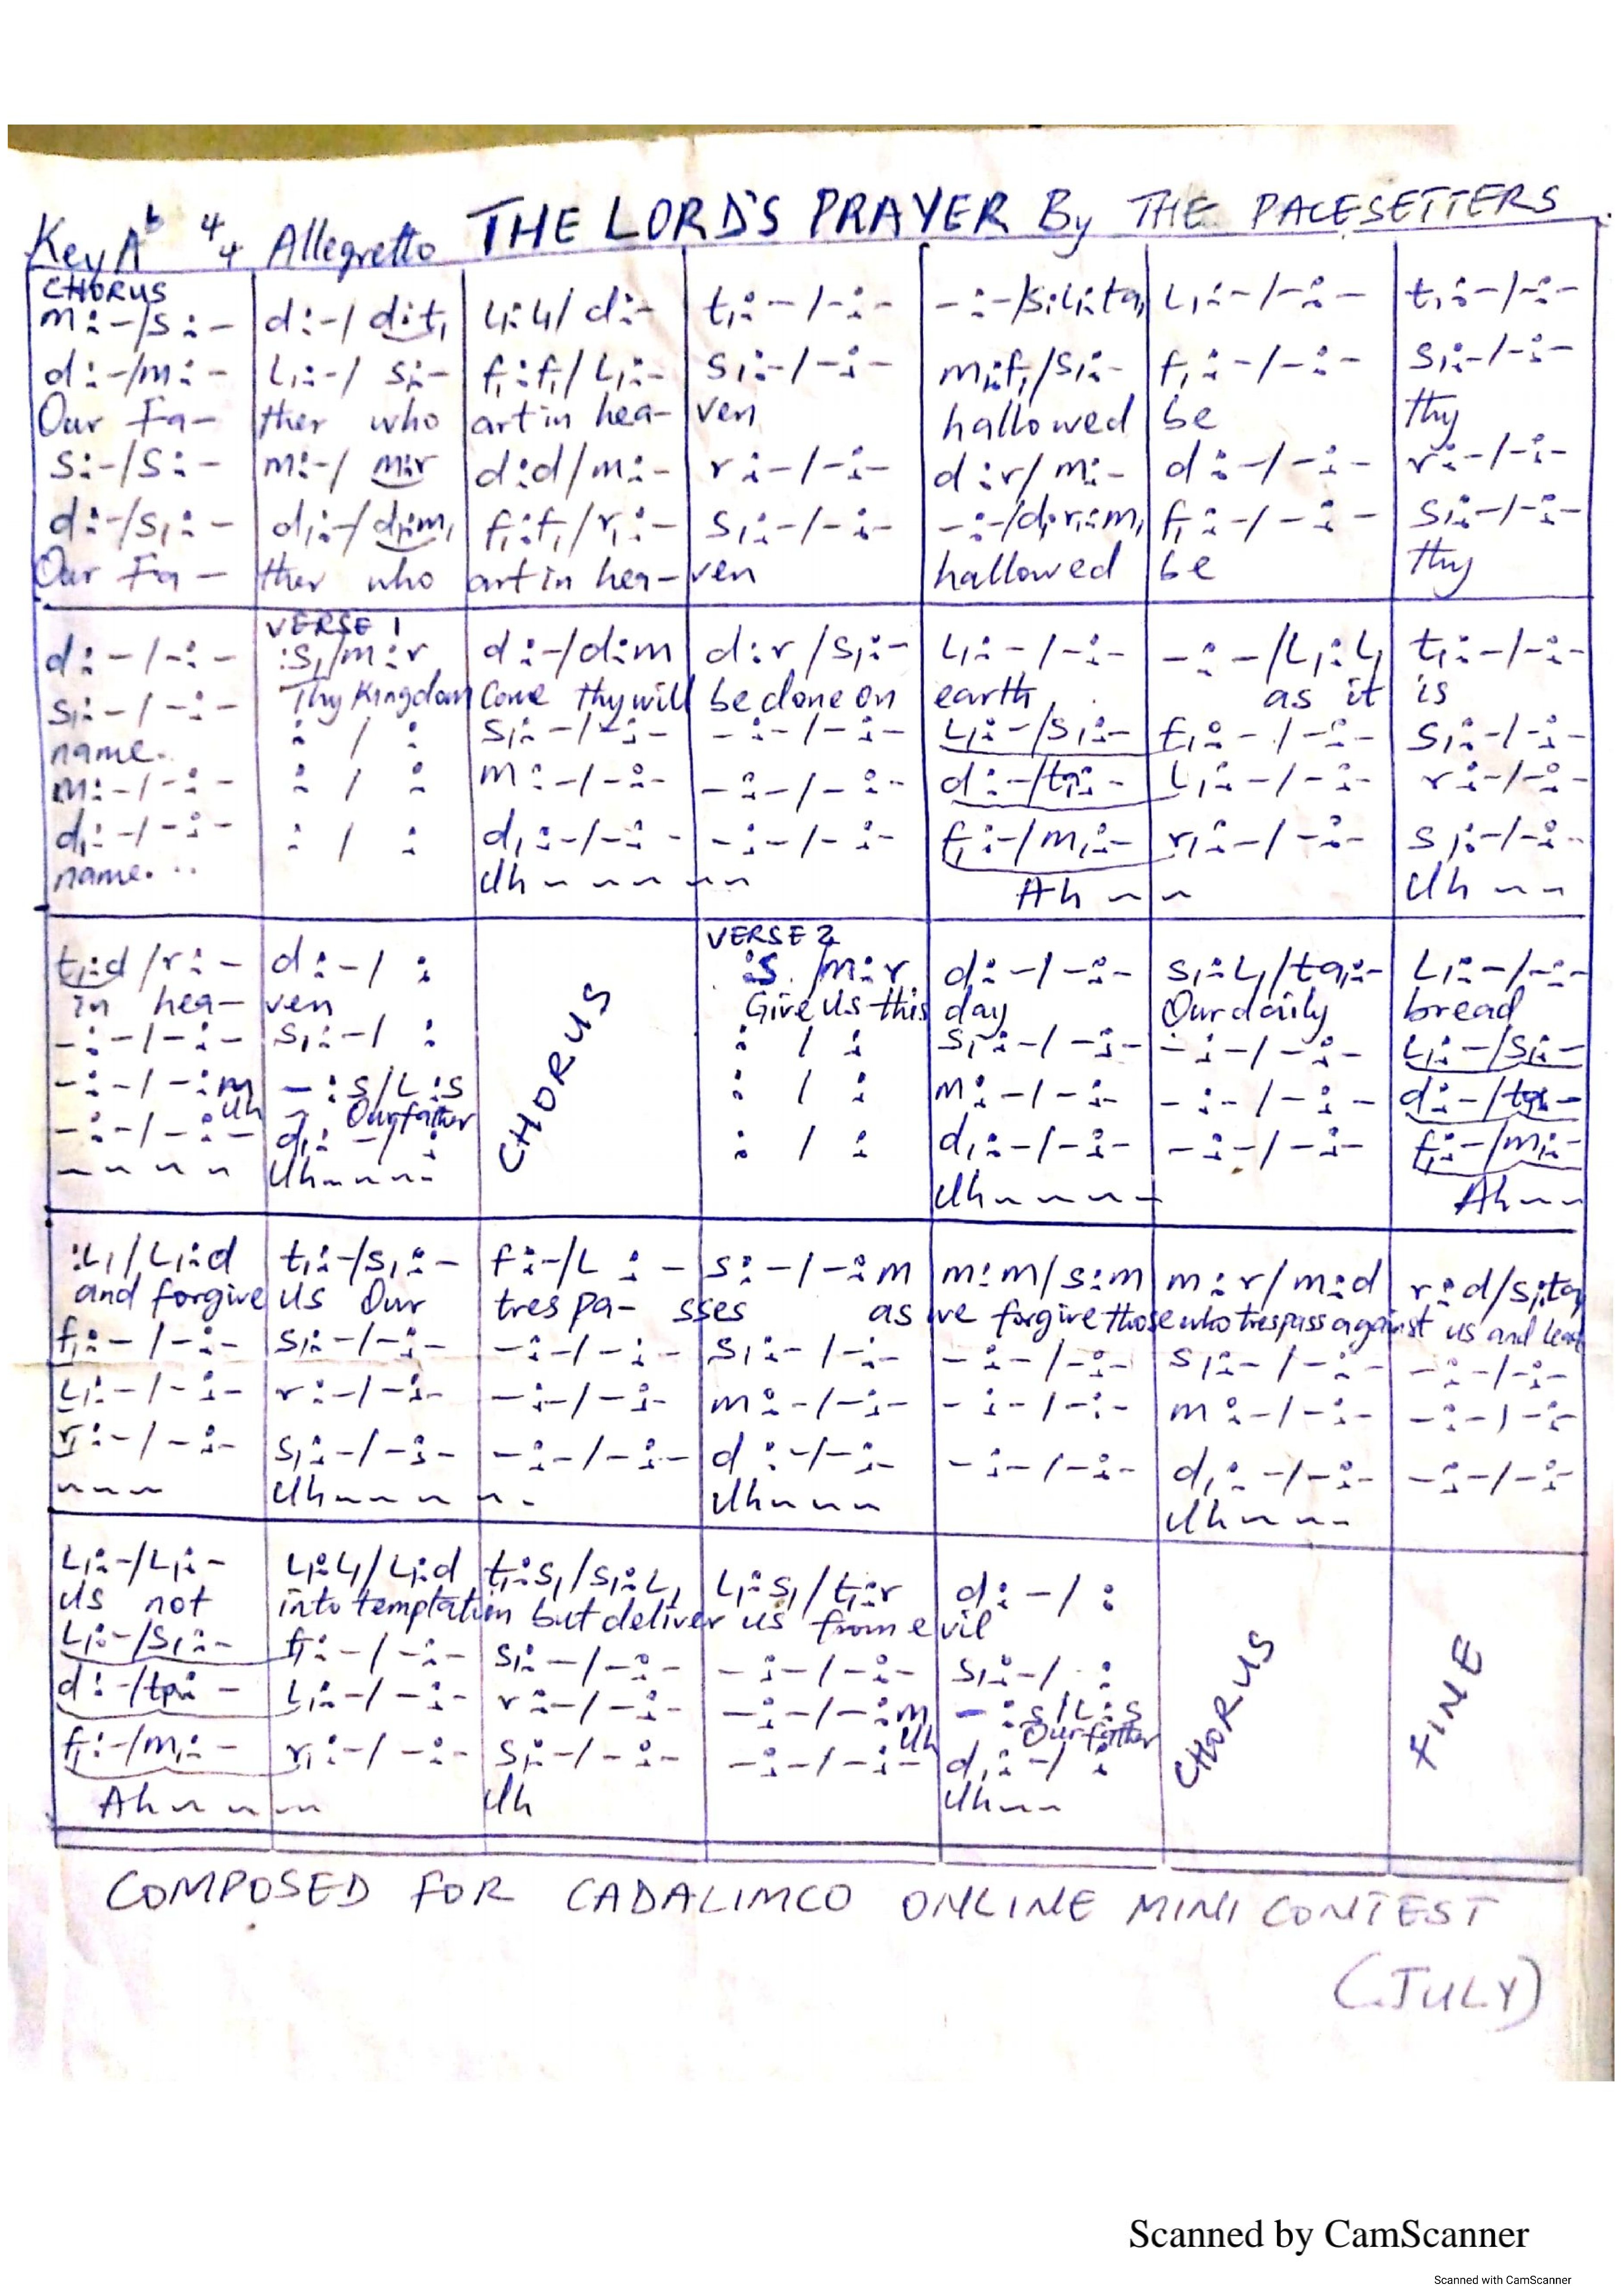 Key A♭ 4/4 Allegretto THE LORD'S PRAYER By THE PACESETTERS
CHORUS
m:-/s:- | d:-/d:t₁ | l₁:l₁/d:- | t₁:-/-:- | -:-/s₁:l₁:ta₁ | l₁:-/-:- | t₁:-/-:-
d:-/m:- | l₁:-/s₁:- | f₁:f₁/l₁:- | s₁:-/-:- | m₁:f₁/s₁:- | f₁:-/-:- | s₁:-/-:-
Our Fa- | ther who | art in hea- | ven | hallowed | be | thy
s:-/s:- | m:-/m:r | d:d/m:- | r:-/-:- | d:r/m:- | d:-/-:- | r:-/-:-
d:-/s₁:- | d₁:-/d₁:m₁ | f₁:f₁/r₁:- | s₁:-/-:- | -:-/d₁:r₁:m₁ | f₁:-/-:- | s₁:-/-:-
Our Fa- | ther who | art in hea- | ven | hallowed | be | thy
VERSE 1
d:-/-:- | :s₁/m:r | d:-/d:m | d:r/s₁:- | l₁:-/-:- | -:-/l₁:l₁ | t₁:-/-:-
Thy Kingdom | Come thy will | be done on | earth | as it | is
s₁:-/-:- | : / : | s₁:-/-:- | -:-/-:- | l₁:-/s₁:- | f₁:-/-:- | s₁:-/-:-
name.
m:-/-:- | : / : | m:-/-:- | -:-/-:- | d:-/ta₁:- | l₁:-/-:- | r:-/-:-
d₁:-/-:- | : / : | d₁:-/-:- | -:-/-:- | f₁:-/m₁:- | r₁:-/-:- | s₁:-/-:-
name... | Uh ~ ~ ~ ~ ~ | Ah ~ ~ | Uh ~ ~
VERSE 2
t₁:d/r:- | d:-/ : | CHORUS | :s₁/m:r | d:-/-:- | s₁:l₁/ta₁:- | l₁:-/-:-
in hea- | ven | Give us this | day | Our daily | bread
-:-/-:- | s₁:-/ : | : / : | s₁:-/-:- | -:-/-:- | l₁:-/s₁:-
-:-/-:m | -:s/l:s | : / : | m:-/-:- | -:-/-:- | d:-/ta₁:-
Uh | Our father
-:-/-:- | d₁:-/ : | : / : | d₁:-/-:- | -:-/-:- | f₁:-/m₁:-
~ ~ ~ ~ | Uh ~ ~ ~ ~ | Uh ~ ~ ~ ~ | Ah ~ ~
:l₁/l₁:d | t₁:-/s₁:- | f:-/l:- | s:-/-:m | m:m/s:m | m:r/m:d | r:d/s₁:ta₁
and forgive | us Our | trespa- | sses as | we forgive those | who trespass against | us and lead
f₁:-/-:- | s₁:-/-:- | -:-/-:- | s₁:-/-:- | -:-/-:- | s₁:-/-:- | -:-/-:-
l₁:-/-:- | r:-/-:- | -:-/-:- | m:-/-:- | -:-/-:- | m:-/-:- | -:-/-:-
r₁:-/-:- | s₁:-/-:- | -:-/-:- | d:-/-:- | -:-/-:- | d₁:-/-:- | -:-/-:-
~ ~ ~ | Uh ~ ~ ~ ~ ~ | Uh ~ ~ ~ | Uh ~ ~ ~
l₁:-/l₁:- | l₁:l₁/l₁:d | t₁:s₁/s₁:l₁ | l₁:s₁/t₁:r | d:-/ : | CHORUS | FINE
us not | into temptation but deliver us from evil
l₁:-/s₁:- | f₁:-/-:- | s₁:-/-:- | -:-/-:- | s₁:-/ :
d:-/ta₁:- | l₁:-/-:- | r:-/-:- | -:-/-:m | -:s/l:s
Uh | Our father
f₁:-/m₁:- | r₁:-/-:- | s₁:-/-:- | -:-/-:- | d₁:-/ :
Ah ~ ~ ~ ~ | Uh | Uh ~ ~
COMPOSED FOR CADALIMCO ONLINE MINI CONTEST
(JULY)
Scanned by CamScanner
Scanned with CamScanner